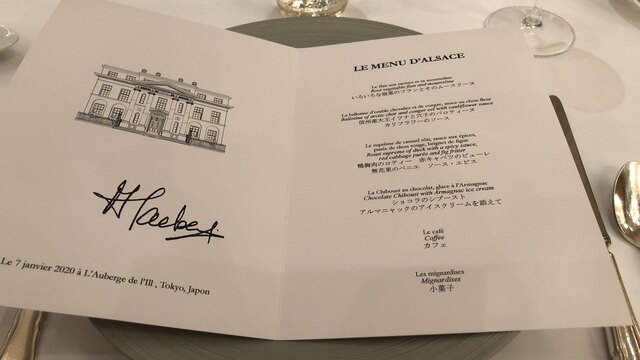 Le 7 janvier 2020 à L'Auberge de l'Ill , Tokyo, Japon
LE MENU D'ALSACE
Le flan aux racines et sa mousseline
Root vegetable flan and mousseline
いろいろな根菜のフランとそのムースリーヌ
La ballotine d'omble chevalier et de congre, sauce au chou-fleur
Ballotine of arctic char and conger eel with cauliflower sauce
信州濃大王イワナと穴子のバロティーヌ
カリフラワーのソース
Le suprême de canard rôti, sauce aux épices,
purée de chou rouge, beignet de figue
Roast supreme of duck with a spicy sauce,
red cabbage purée and fig fritter
鴨胸肉のロティー 赤キャベツのピューレ
無花果のベニエ ソース・エピス
La Chiboust au chocolat, glace à l'Armagnac
Chocolate Chiboust with Armagnac ice cream
ショコラのシブースト
アルマニャックのアイスクリームを添えて
Le café
Coffee
カフェ
Les mignardises
Mignardises
小菓子